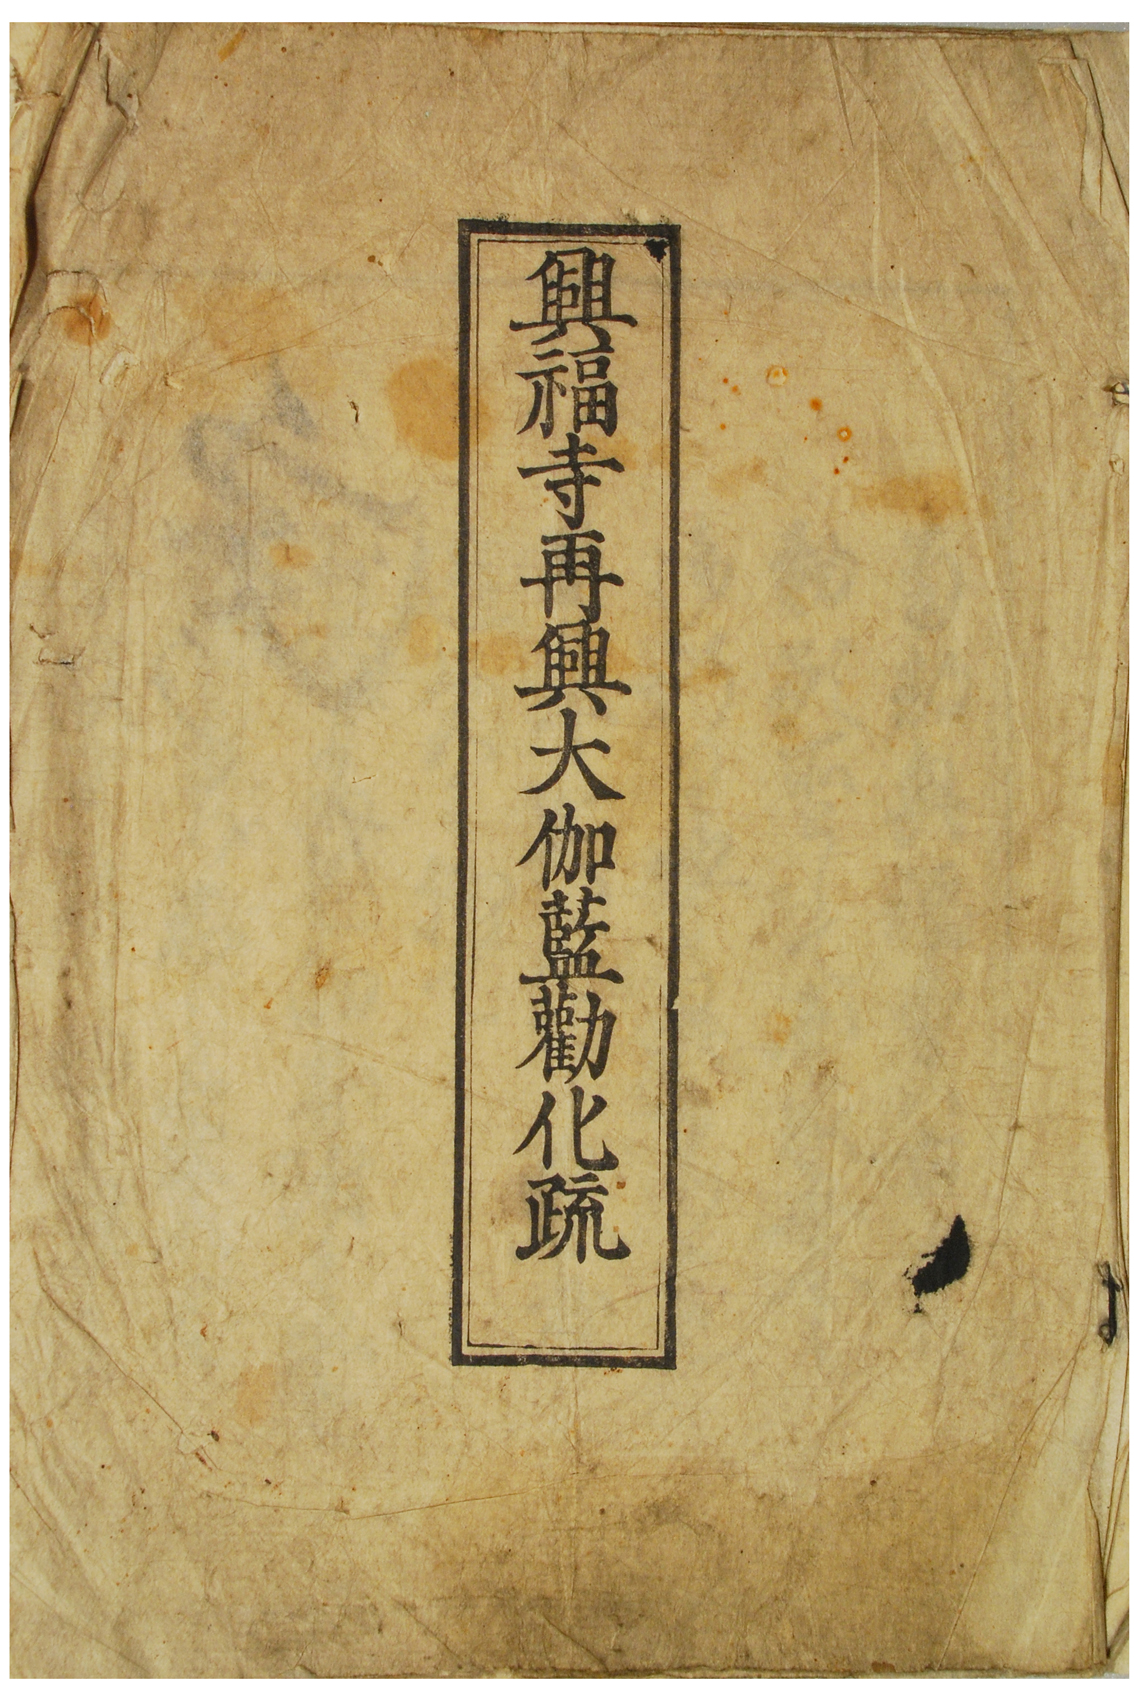 興福寺再興大伽藍勸化疏